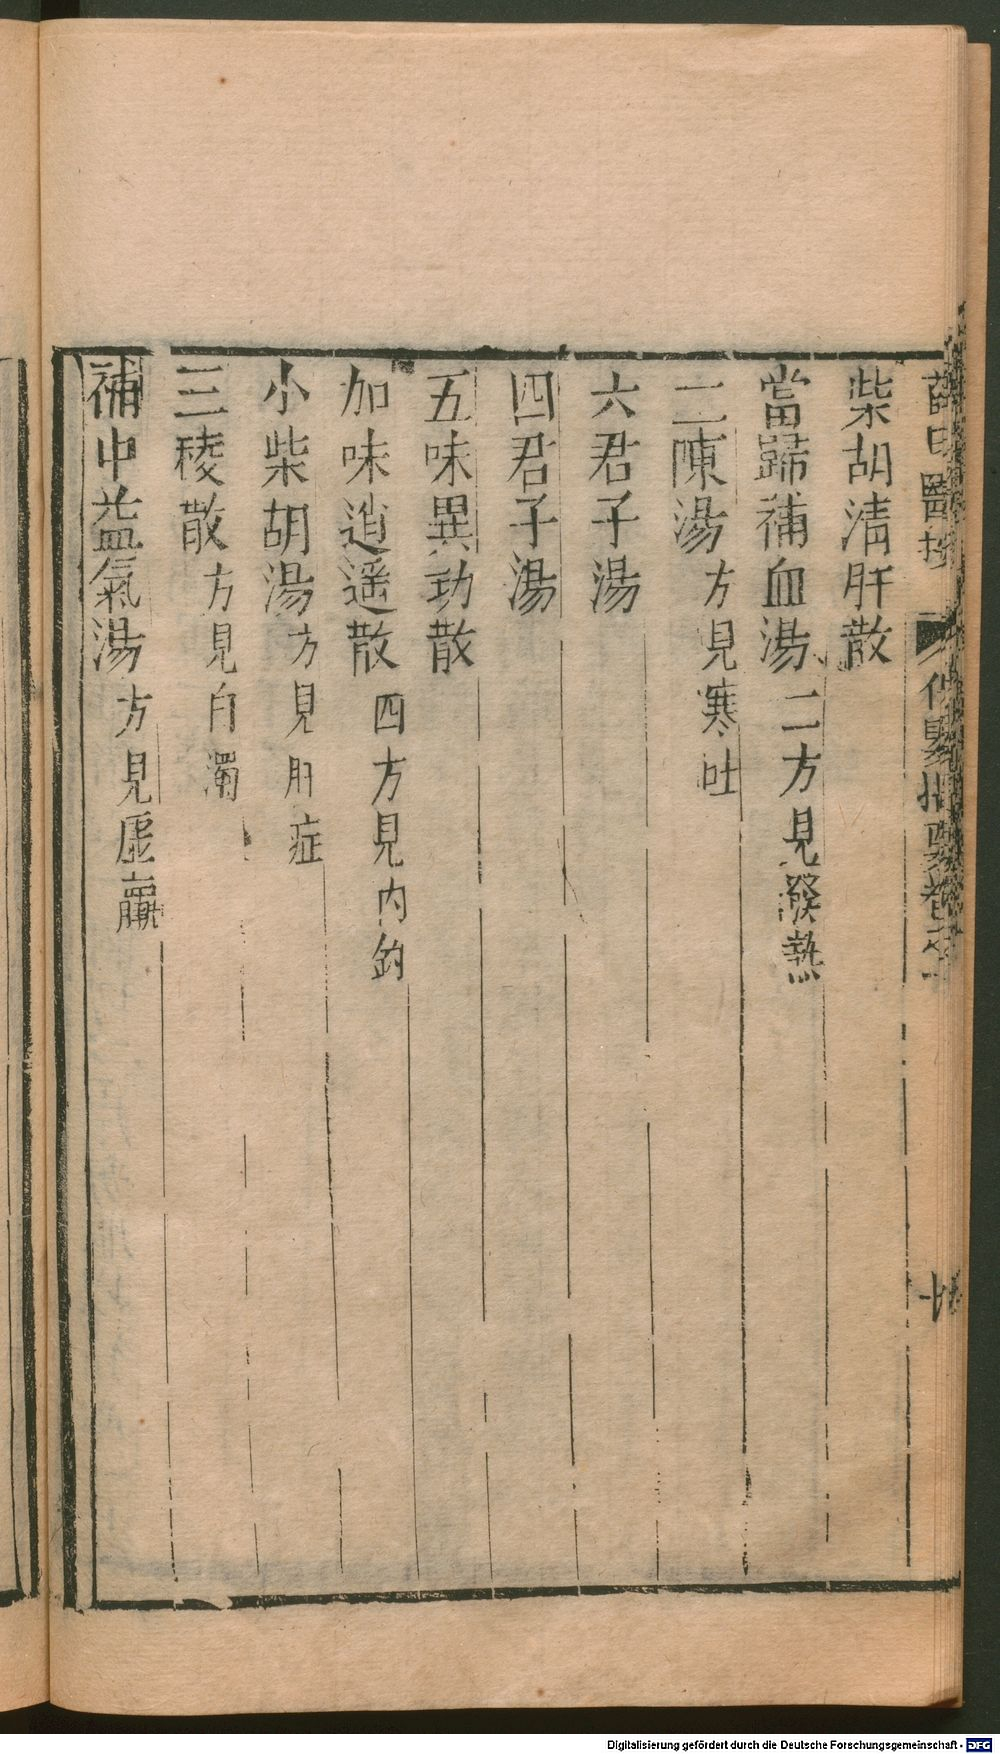 薛氏醫按
保嬰撮要卷之十
柴胡清肝散
當歸補血湯二方見發熱
二陳湯方見寒吐
六君子湯
四君子湯
五味異功散
加味逍遥散四方見內釣
小柴胡湯方見肝症
三稜散方見白濁
補中益氣湯方見虛羸
Digitalisierung gefördert durch die Deutsche Forschungsgemeinschaft - DFG